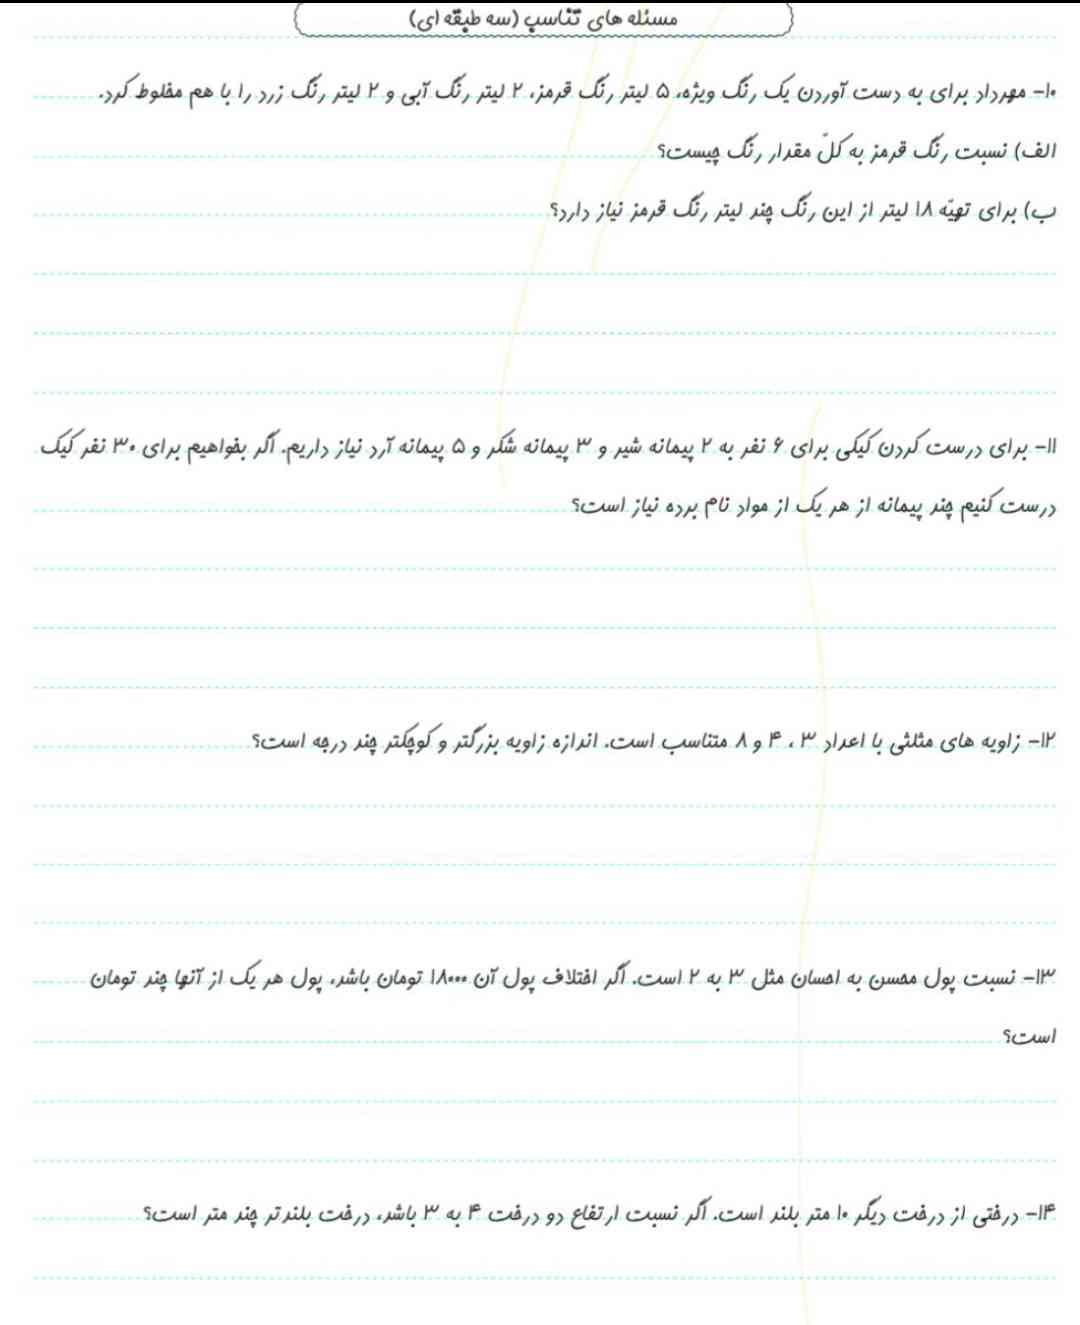 مسئله های تناسب (سه طبقه ای)
۱۰- مهرداد برای به دست آوردن یک رنگ ویژه، ۵ لیتر رنگ قرمز، ۲ لیتر رنگ آبی و ۲ لیتر رنگ زرد را با هم مخلوط کرد.
الف) نسبت رنگ قرمز به کلّ مقدار رنگ چیست؟
ب) برای تهیّه ۱۸ لیتر از این رنگ چند لیتر رنگ قرمز نیاز دارد؟
۱۱- برای درست کردن کیکی برای ۶ نفر به ۲ پیمانه شیر و ۳ پیمانه شکر و ۵ پیمانه آرد نیاز داریم. اگر بخواهیم برای ۳۰ نفر کیک
درست کنیم چند پیمانه از هر یک از مواد نام برده نیاز است؟
۱۲- زاویه های مثلثی با اعداد ۳ ، ۴ و ۸ متناسب است. اندازه زاویه بزرگتر و کوچکتر چند درجه است؟
۱۳- نسبت پول محسن به احسان مثل ۳ به ۲ است. اگر اختلاف پول آن ۱۸۰۰۰ تومان باشد، پول هر یک از آنها چند تومان
است؟
۱۴- درختی از درخت دیگر ۱۰ متر بلند است. اگر نسبت ارتفاع دو درخت ۴ به ۳ باشد، درخت بلندتر چند متر است؟